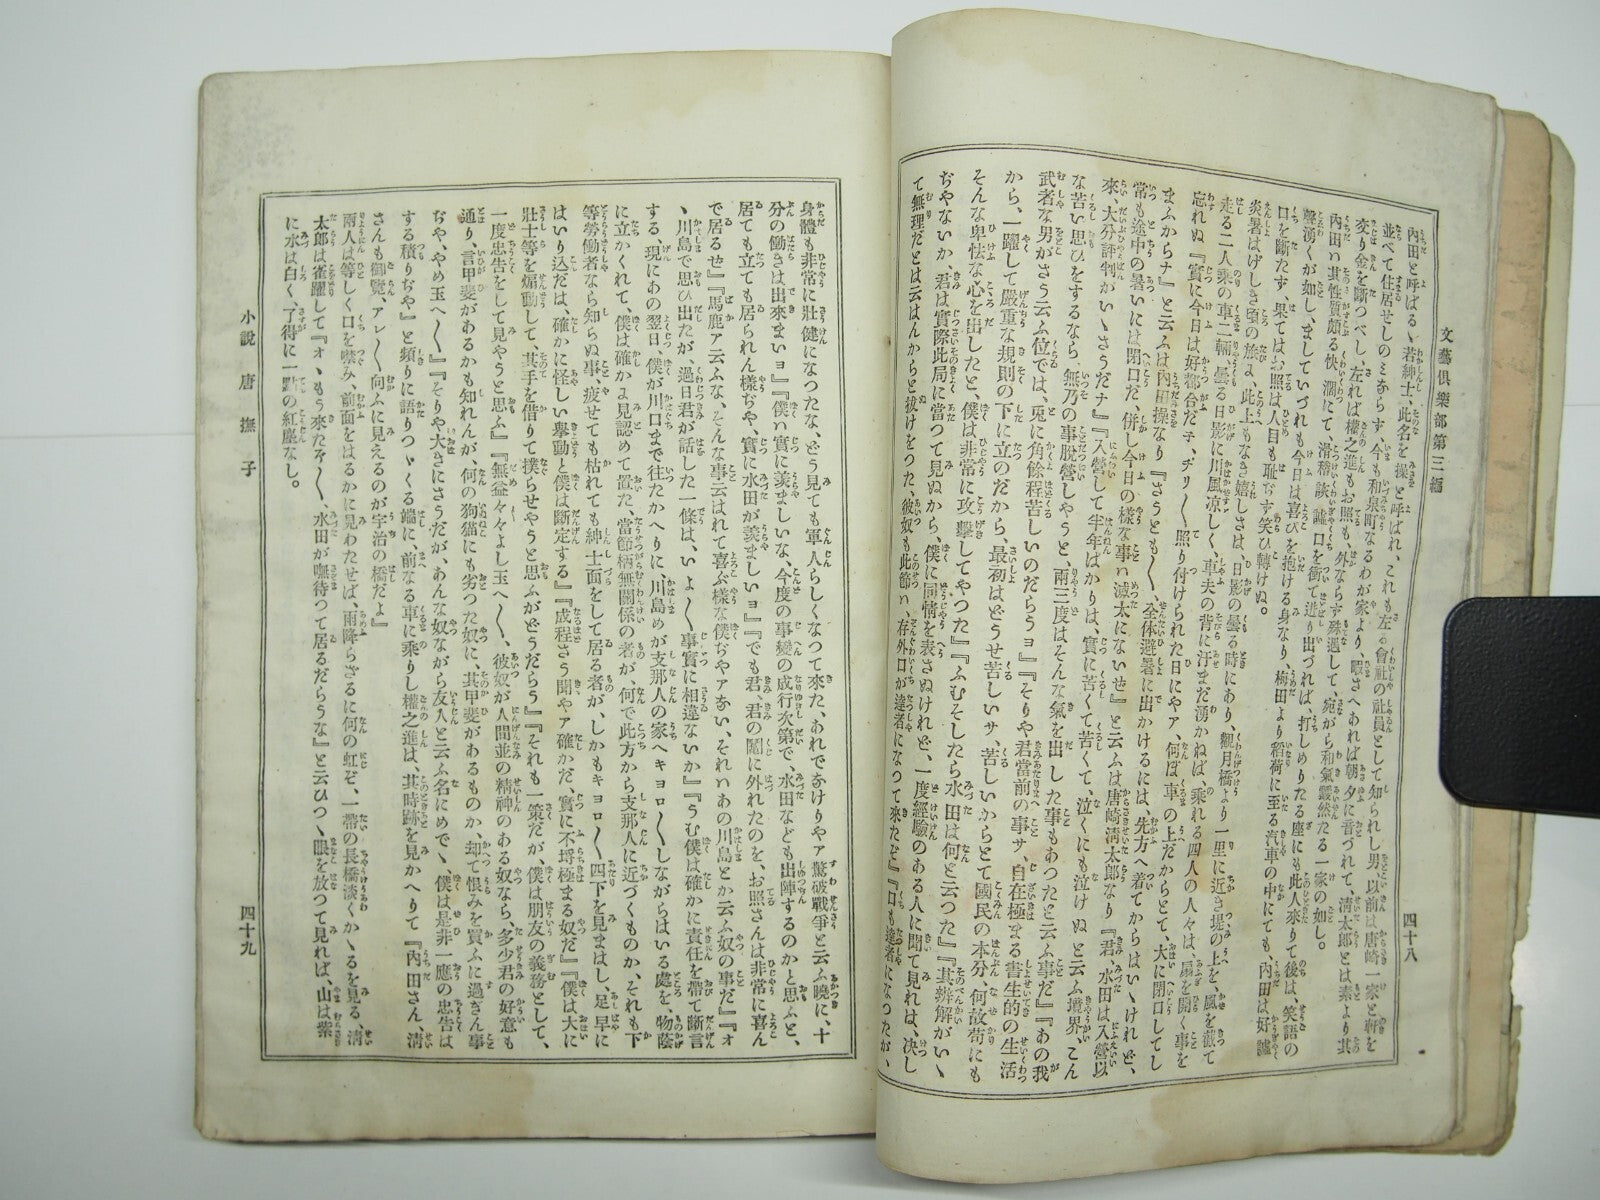 文藝倶樂部第三編
四十八
內田と呼ばるゝ若紳士、此名を操と呼ばれ、これも左る會社の社員として知られし男、以前は唐崎一家と軒を
並べて住居せしのみならす、今も和泉町なるわが家より、暇さへあれば朝夕に音づれて、淸太郎とは素より其
變り金を斷つべし、左れば權之進もお照も、外ならず殊遇して、宛がら和氣靄然たる一家の如し。
內田は其性質頗る快濶にて、滑稽談謔口を衝て迸り出づれば、打しめりたる座にも此人來りて後は、笑語の
聲湧くが如し、ましていづれも今日は喜びを抱ける身なり、梅田より稻荷に至る汽車の中にても、內田は好謔
口を斷たず、果てはお照は人目も耻ぢす笑ひ轉けぬ。
炎暑はげしき頃の旅は、此上もなき嬉しさは、日影の曇る時にあり、觀月橋より一里に近き堤の上を、風を截て
走る二人乘の車二輛、曇る日影に川風凉しく、車夫の背に汗まだ湧かねば、乘れる四人の人々は、扇を開く事を
忘れぬ『實に今日は、好都合だ子、ヂリ〱照り付けられた日にやァ、何ぼ車の上だからとて、大に閉口してし
まふからナ』と云ふは內田操なり『さうとも〱、全体避暑に出かけるには、先方へ着てからはいゝけれど、
常も途中の暑いには閉口だ、併し今日の樣な事は滅太にないぜ』と云ふは唐崎淸太郎なり『君、水田は入營以
來、大分評判がいゝさうだナ』『入營して半年ばかりは、實に苦くて苦くて、泣くにも泣けぬと云ふ境界、こん
な苦い思ひをするなら、無乃の事脫營しやうと、兩三度はそんな氣を出した事もあつたと云ふ事だ』『あの我
武者な男がさう云ふ位では、兎に角餘程苦しいのだらうヨ』『そりや君當前の事サ、自在極まる書生的の生活
から、一躍して嚴重な規則の下に立のだから、最初はどうせ苦しいサ、苦しいからとて國民の本分、何故苟にも
そんな卑怯な心を出したと、僕は非常に攻擊してやつた』『ふむそしたら水田は何と云つた』『其辨解がいゝ
ぢやないか、君は實際此局に當つて見ぬから、僕に同情を表さぬけれど、一度經驗のある人に聞て見れば、决し
て無理だとは云はんからと拔けをつた、彼奴も此節は存外口が達者になつて來たぞ』『口も達者になつたが、
身體も非常に壯健になつたな、どう見ても軍人らしくなつて來た、あれでなけりやァ驚破戰爭と云ふ曉に、十
分の働きは出來まいヨ』『僕は實に羨ましいな、今度の事變の成行次第で、水田なども出陣するのかと思ふと、
居ても立ても居られん樣ぢや、實に水田が羨ましいヨ』『でも君、君の鬮に外れたのを、お照さんは非常に喜ん
で居るせ』『馬鹿ァ云ふな、そんな事云はれて喜ぶ樣な僕ぢやアない、それはあの川島とか云ふ奴の事だ』『ォ
ゝ川島で思ひ出たが、過日君が話した一條は、いよ〱事實に相違ないか』『うむ僕は確かに責任を帶て斷言
する、現にあの翌日、僕が川口まで往たかへりに、川島めが支那人の家へキョロ〱しながらはいる處を、物蔭
に立かくれて、僕は確かよ見認めて置た、當節柄無關係の者が、何で此方から支那人に近づくものか、それも下
等勞働者なら知らぬ事、疲せても枯れても紳士面をして居る者が、しかもキョロ〱四下を見まはし、足早に
はいり込だは、確かに怪しい擧動と僕は斷定する』『成程さう聞やァ確かだ、實に不埒極まる奴だ』『僕は大に
壯士等を煽動して、其手を借りて撲らせやうと思ふがどうだらう』『それも一策だが、僕は朋友の義務として、
一度忠告をして見やうと思ふ』『無益々々よし玉へ〱、彼奴が人間並の精神のある奴なら、多少君の好意も
通り、言甲斐があるかも知れんが、何の狗猫にも劣つた奴に、其甲斐があるものか、却て恨みを買ふに過ぎん事
ぢや、やめ玉へ〱』『そりや大きにさうだが、あんな奴ながら友人と云ふ名にめで、僕は是非一應の忠告は
する積りぢや』と頻りに語りつゝくる端に、前なる車に乘りし權之進は、其時跡を見かへりて『內田さん、淸
さんも御覽、アレ〱向ふに見えるのが宇治の橋だよ』
兩人は等しく口を噤み、前面をはるかに見わたせば、雨降らざるに何の虹ぞ、一帶の長橋淡くかゝるを見る、淸
太郎は雀躍して『ォゝもう來たぞ〱、水田が嘸待つて居るだらうな』と云ひつゝ、眼を放つて見れば、山は紫
に水は白く、了得に一點の紅塵なし。
小說　唐撫子
四十九